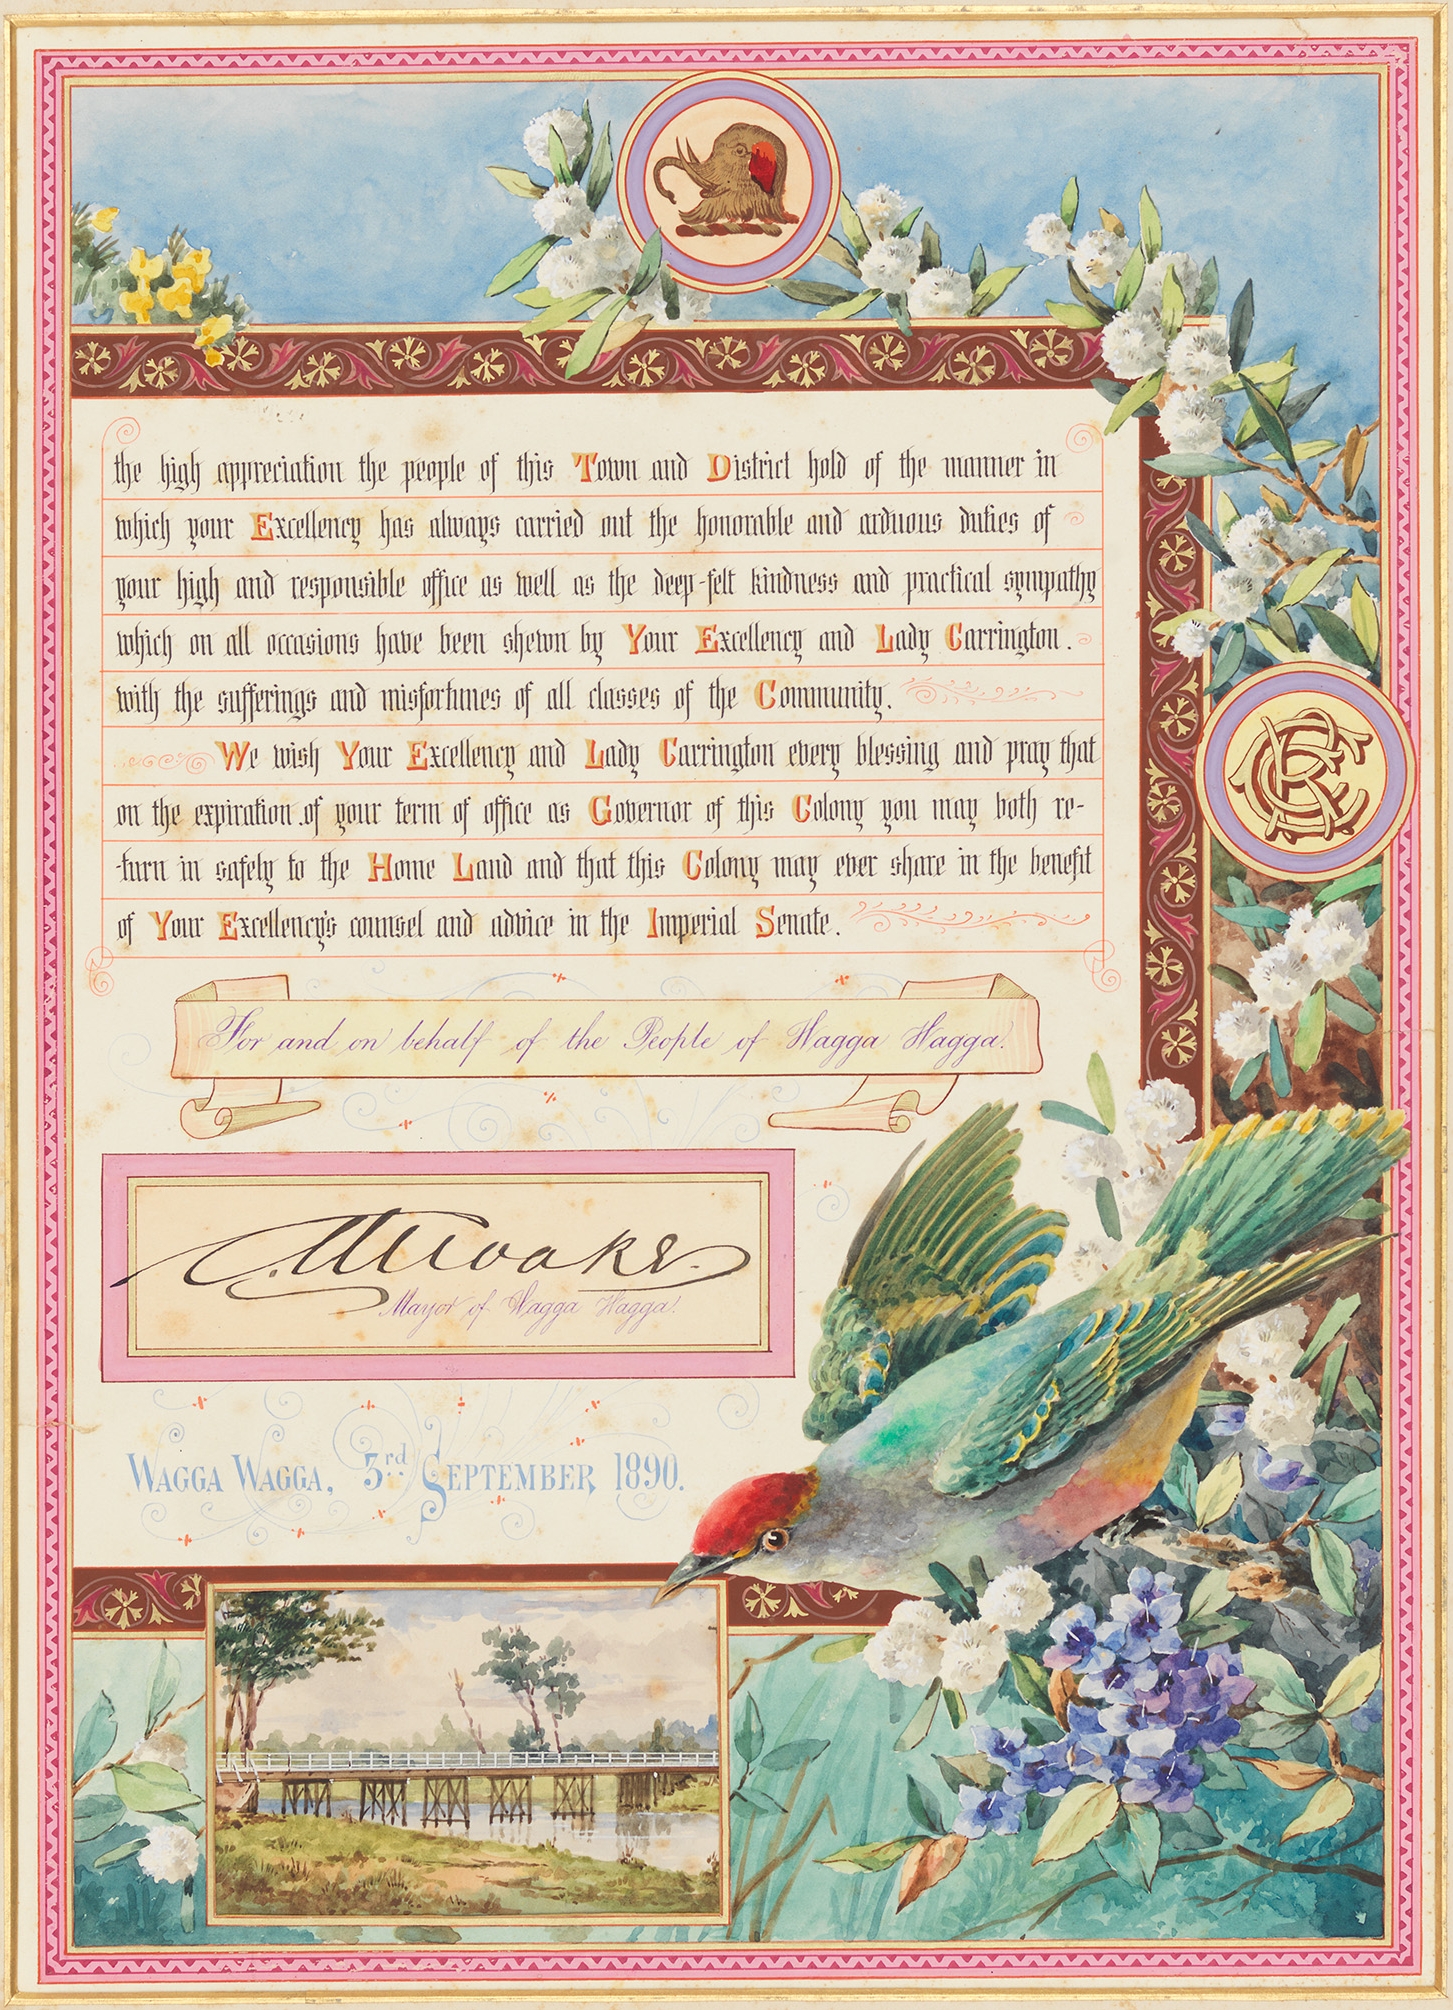 the high appreciation the people of this Town and District hold of the manner in
which your Excellency has always carried out the honorable and arduous duties of
your high and responsible office as well as the deep-felt kindness and practical sympathy
which on all occasions have been shewn by Your Excellency and Lady Carrington.
with the sufferings and misfortunes of all classes of the Community.
We wish Your Excellency and Lady Carrington every blessing and pray that
on the expiration of your term of office as Governor of this Colony you may both re-
-turn in safety to the Home Land and that this Colony may ever share in the benefit
of Your Excellency's counsel and advice in the Imperial Senate.
For and on behalf of the People of Wagga Wagga.
Mayor of Wagga Wagga.
Wagga Wagga, 3rd September 1890.